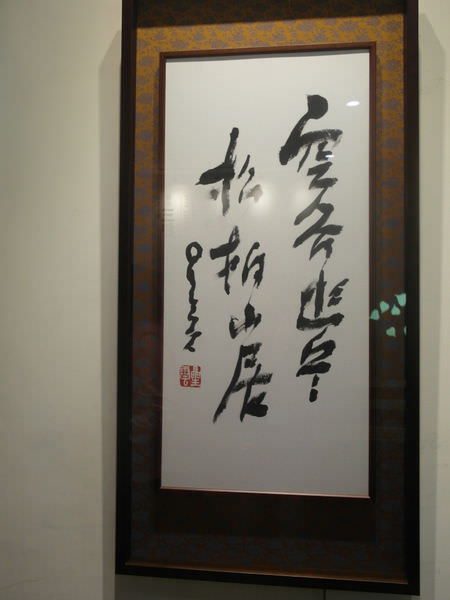 空谷幽亭
松柏山居
星雲